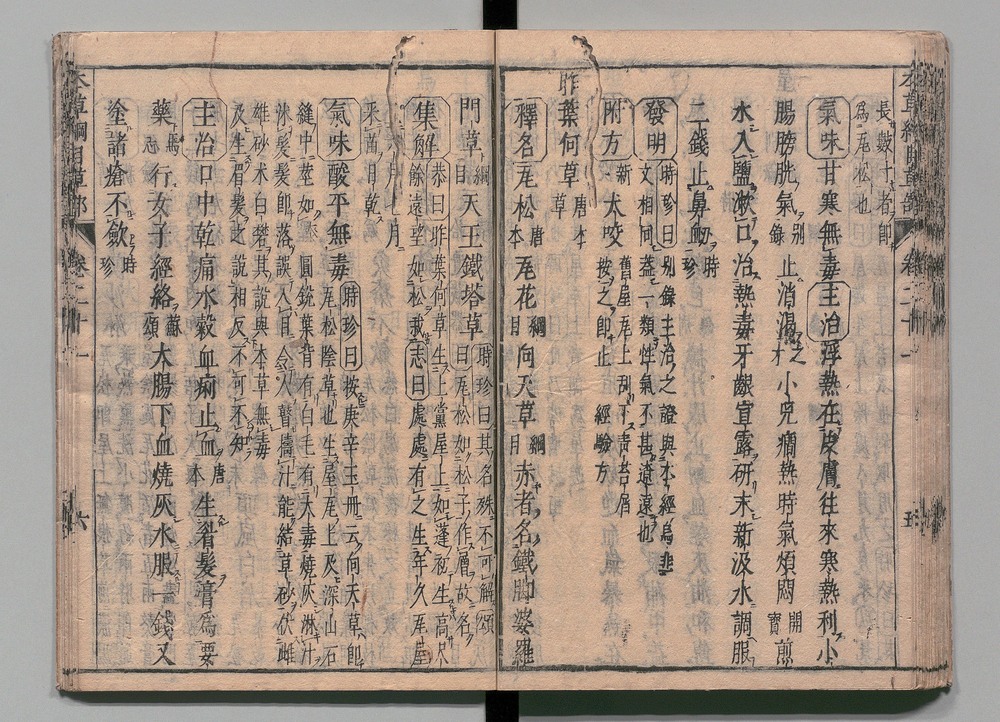 長數十者即
爲瓦松也
氣味甘寒無毒主治浮熱在皮膚往來寒熱利小
腸膀胱氣別錄止消渴之才小兒癇熱時氣煩悶開寶煎
水入鹽漱口治熱毒牙齦宣露研末新汲水調服
二錢止鼻衄時珍
發明時珍曰別錄主治之證與本經烏韭
文相同葢一類性氣不甚遼遠也
附方新一犬咬舊屋瓦上刮下青苔屑
按之即止經驗方
昨葉何草唐本草
釋名瓦松唐本瓦花綱目向天草綱目赤者名鐵脚婆羅
門草綱目天王鐵塔草時珍曰其名殊不可解頌
曰瓦松如松子作層故名
集解恭曰昨葉何草生上黨屋上如蓬初生高尺
餘遠望如松栽志曰處處有之生年久瓦屋
上六月七月
采苗日乾
氣味酸平無毒時珍曰按庚辛玉冊云向天草即
瓦松陰草也生屋瓦上及深山石
縫中莖如漆圓銳葉背有白毛有大毒燒灰淋汁
沐髮髮即落誤入目令人瞽擣汁能結草砂伏雌
雄砂汞白礬其說與本草無毒
及生眉髮之說相反不可不知
主治口中乾痛水穀血痢止血唐本生眉髮膏爲要
藥馬志行女子經絡蘇頌大腸下血燒灰水服一錢又
塗諸瘡不斂時珍
本草綱目草部
卷二十一
六